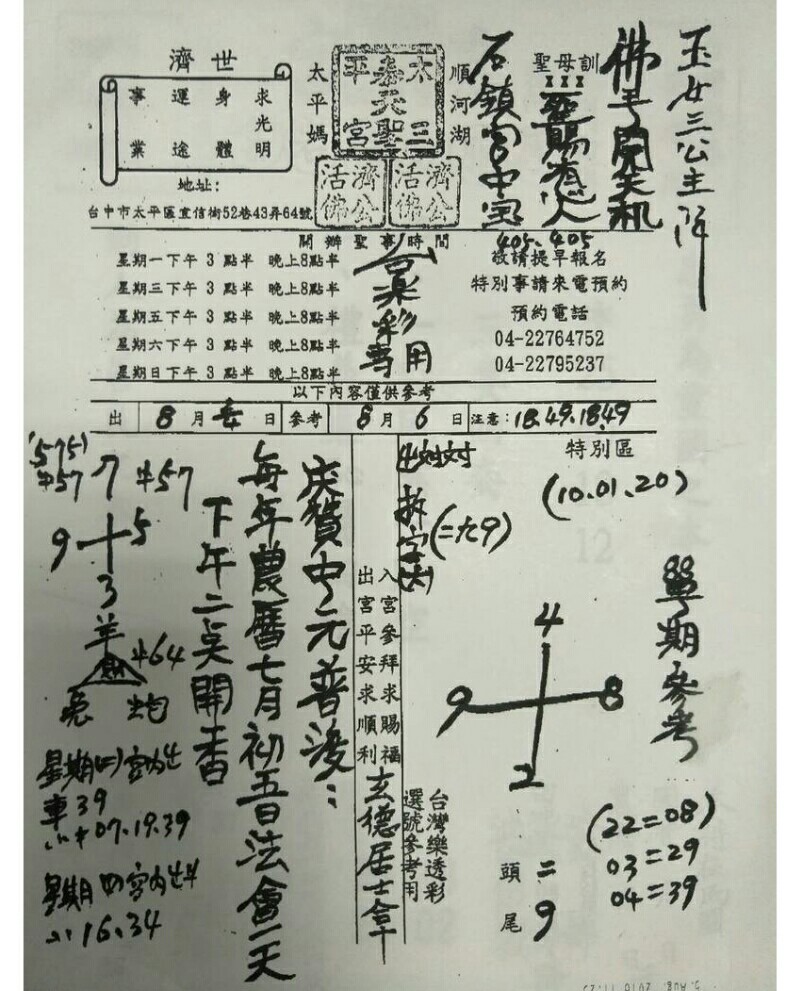 玉女三公主降
佛手開天机
聖母訓
聖賜有心人
石鎮宮中宝
405.405
順河湖
太平媽
木三
泰天聖
平宮
濟公活佛
濟公活佛
濟世
求身運事
光
明體途業
地址:
台中市太平區宜信街52巷43弄64號
開辦聖事時間
星期一下午 3 點半 晚上8點半
星期三下午 3 點半 晚上8點半
星期五下午 3 點半 晚上8點半
星期六下午 3 點半 晚上8點半
星期日下午 3 點半 晚上8點半
合樂彩
專用
敬請提早報名
特別事請來電預約
預約電話
04-22764752
04-22795237
以下內容僅供參考
出 8 月 日 參考 8 月 6 日 注意:18.49.18.49
特別區
(10.01.20)
單期參考
4
9 8
2
(22=08)
03=29
04=39
頭 二
尾 9
台灣樂透彩
選號參考用
拆字
(二九9)
入宮參拜求賜福
出宮平安求順利
玄德居士拿
慶贊中元普渡:
每年農曆七月初五日法會一天
下午二点開香
(575)
457 7 457
9 5
3
羊
464
兔 蛇
車39
07.19.39
16.34